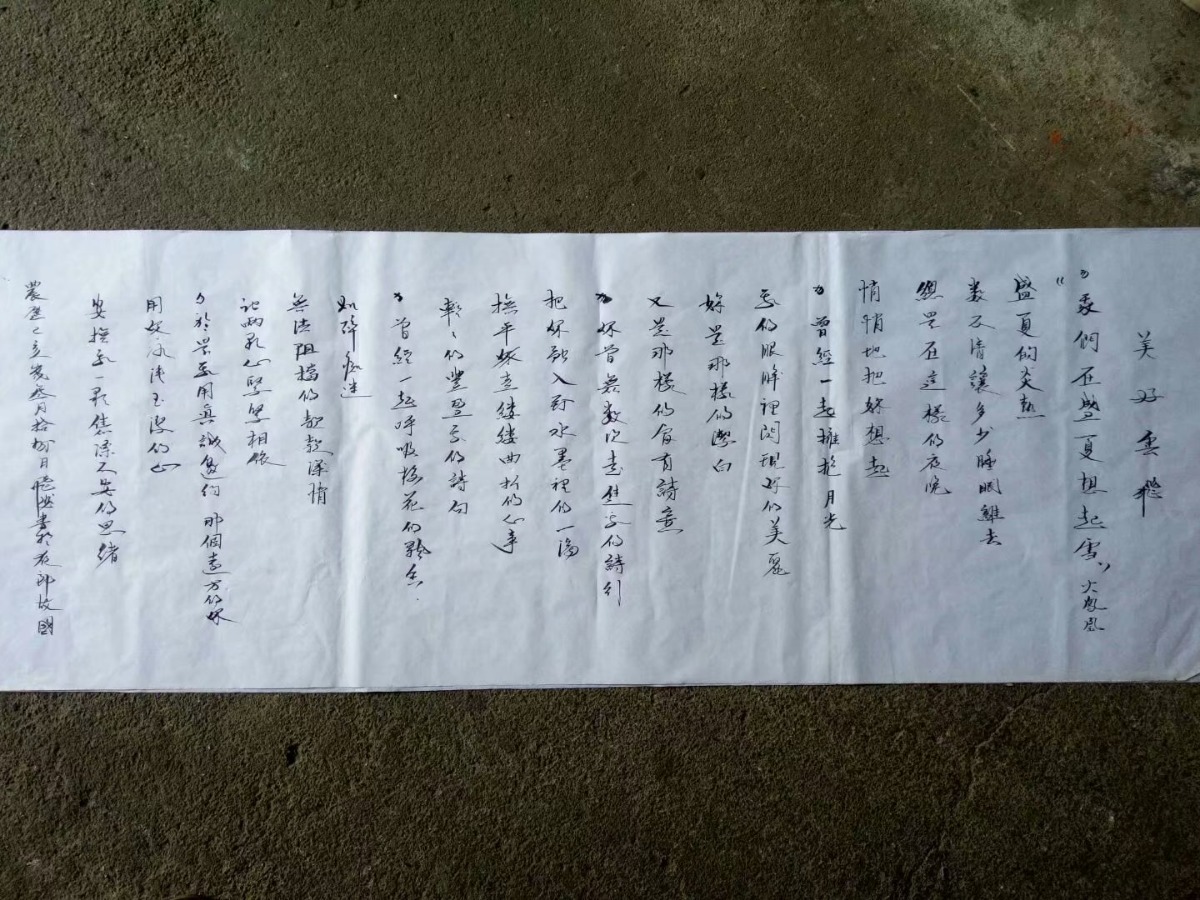 美好雪飛
"我們在盛夏想起雪"火鳳凰
盛夏的炎熱
數不清讓多少睡眠離去
總是在這樣的夜晚
悄悄地把妳想起
曾經一起擁抱月光
我的眼眸裡閃現妳的美麗
妳是那樣的潔白
又是那樣的富有詩意
妳曾無數次走進我的詩行
把妳融入到水墨裡的一滴
撫平妳走縷縷曲折的心事
輕輕的豐盈我的詩句
曾經一起呼吸梅花的飄香
如醉痴迷
無法阻擋的款款深情
讓兩顆心緊緊相依
於是我用真誠邀約那個遠方的妳
用妳冰清玉潔的心
安撫我一顆焦躁不安的思緒
農曆己亥歲 月拾 日 書於夜郎故國